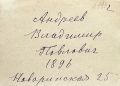 №2
Андреев
Владимир
Павлович
1896
Наваринская 25